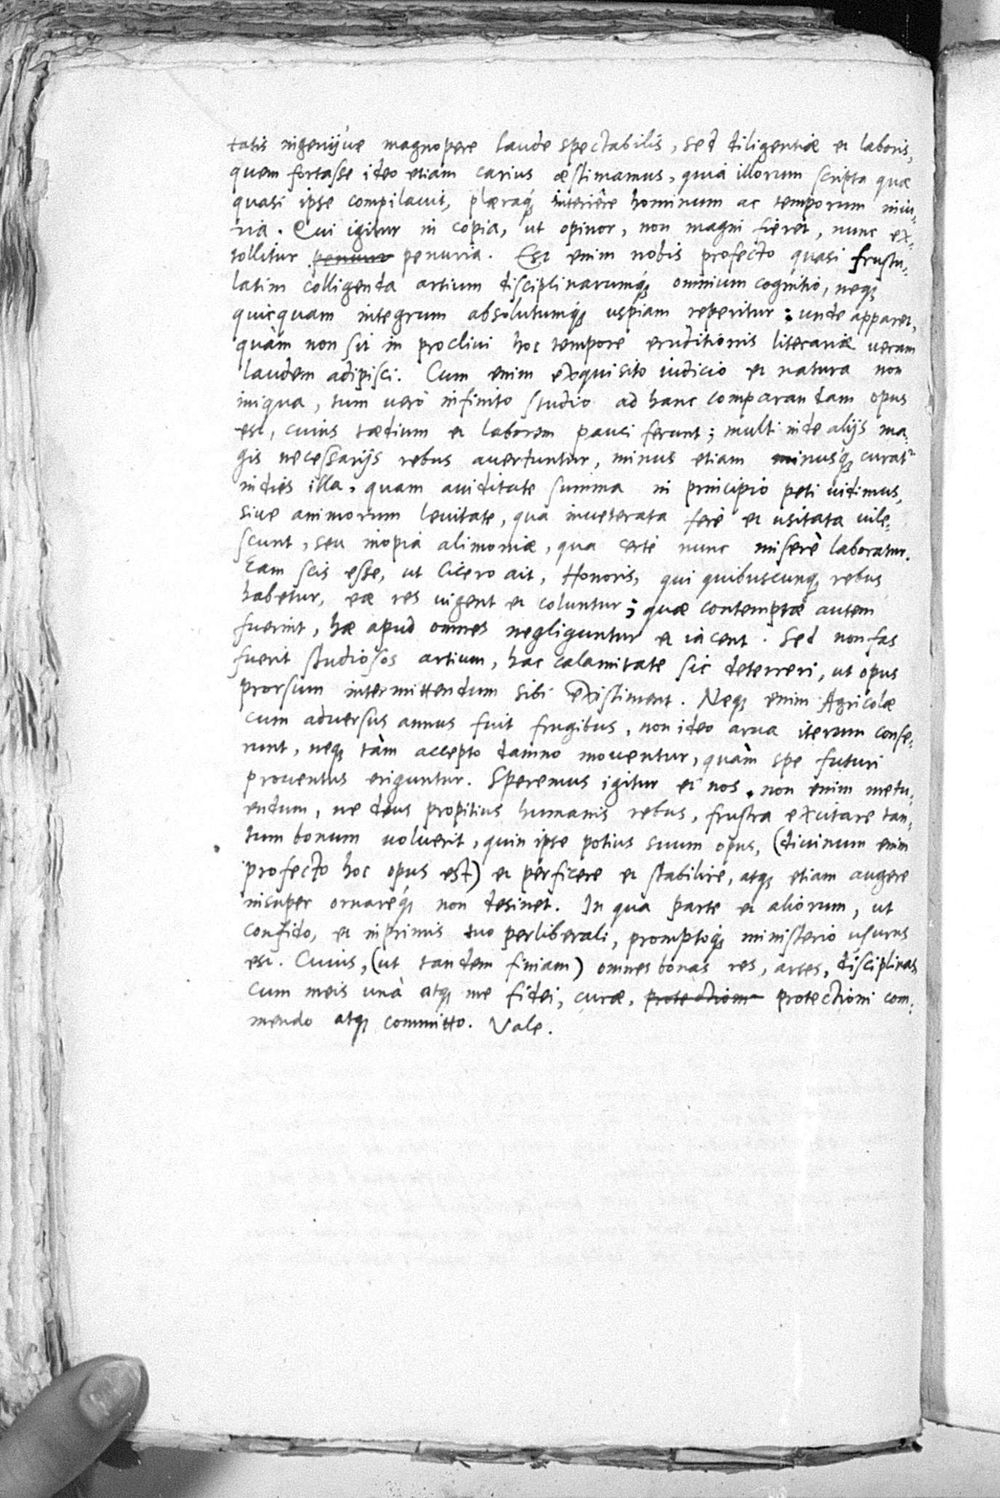 tatis ingenijue magnopere laude spectabilis, sed diligentiæ et laboris,
quem fortasse ideo etiam carius æstimamus, quia illorum scripta quæ
quasi ipse compilauit, pleraq; interiêre hominum ac temporum iniu-
ria. Qui igitur in copia, ut opinor, non magni fieret, nunc ex-
tollitur penuria penuria. Est enim nobis profecto quasi frustu-
latim colligenda artium disciplinarumq; omnium cognitio, neq;
quicquam integrum absolutumq; uspiam reperitur: unde apparet,
quàm non sit in procliui hoc tempore eruditionis literariæ ueram
laudem adipisci. Cum enim exquisito iudicio et natura non
iniqua, tum uerò infinito studio ad hanc comparandam opus
est, cuius tædium et laborem pauci ferunt; multi inde alijs ma-
gis necessarijs rebus auertuntur, minus etiam minusq; curat'
indies illa, quam auiditate summa in principio peti uidimus,
siue animorum leuitate, qua inueterata ferè et usitata uile-
scunt, seu inopia alimoniæ, qua certè nunc miserè laboratur.
Eam scis esse, ut Cicero ait, Honoris, qui quibuscunq; rebus
habetur, eæ res uigent et coluntur; quæ contemptæ autem
fuerint, hæ apud omnes negliguntur et iacent. Sed non fas
fuerit studiosos artium, hac calamitate sic deterreri, ut opus
prorsum intermittendum sibi existiment. Neq; enim Agricolæ
cum aduersus annus fuit frugibus, non ideo arua iterum conse-
runt, neq; tàm accepto damno mouentur, quàm spe futuri
prouentus eriguntur. Speremus igitur et nos, non enim metu-
endum, ne deus propitius humanis rebus, frustra excitare tan-
tum bonum uoluerit, quin ipse potius suum opus, (diuinum enim
profecto hoc opus est) et perficere et stabilire, atq; etiam augere
insuper ornareq; non desinet. In qua parte et aliorum, ut
confido, et inprimis tuo perliberali, promptoq; ministerio usurus
est. Cuius, (ut tandem finiam) omnes bonas res, artes, disciplinas
cum meis unà atq; me fidei, curæ, protectioni protectioni com-
mendo atq; committo. Vale.